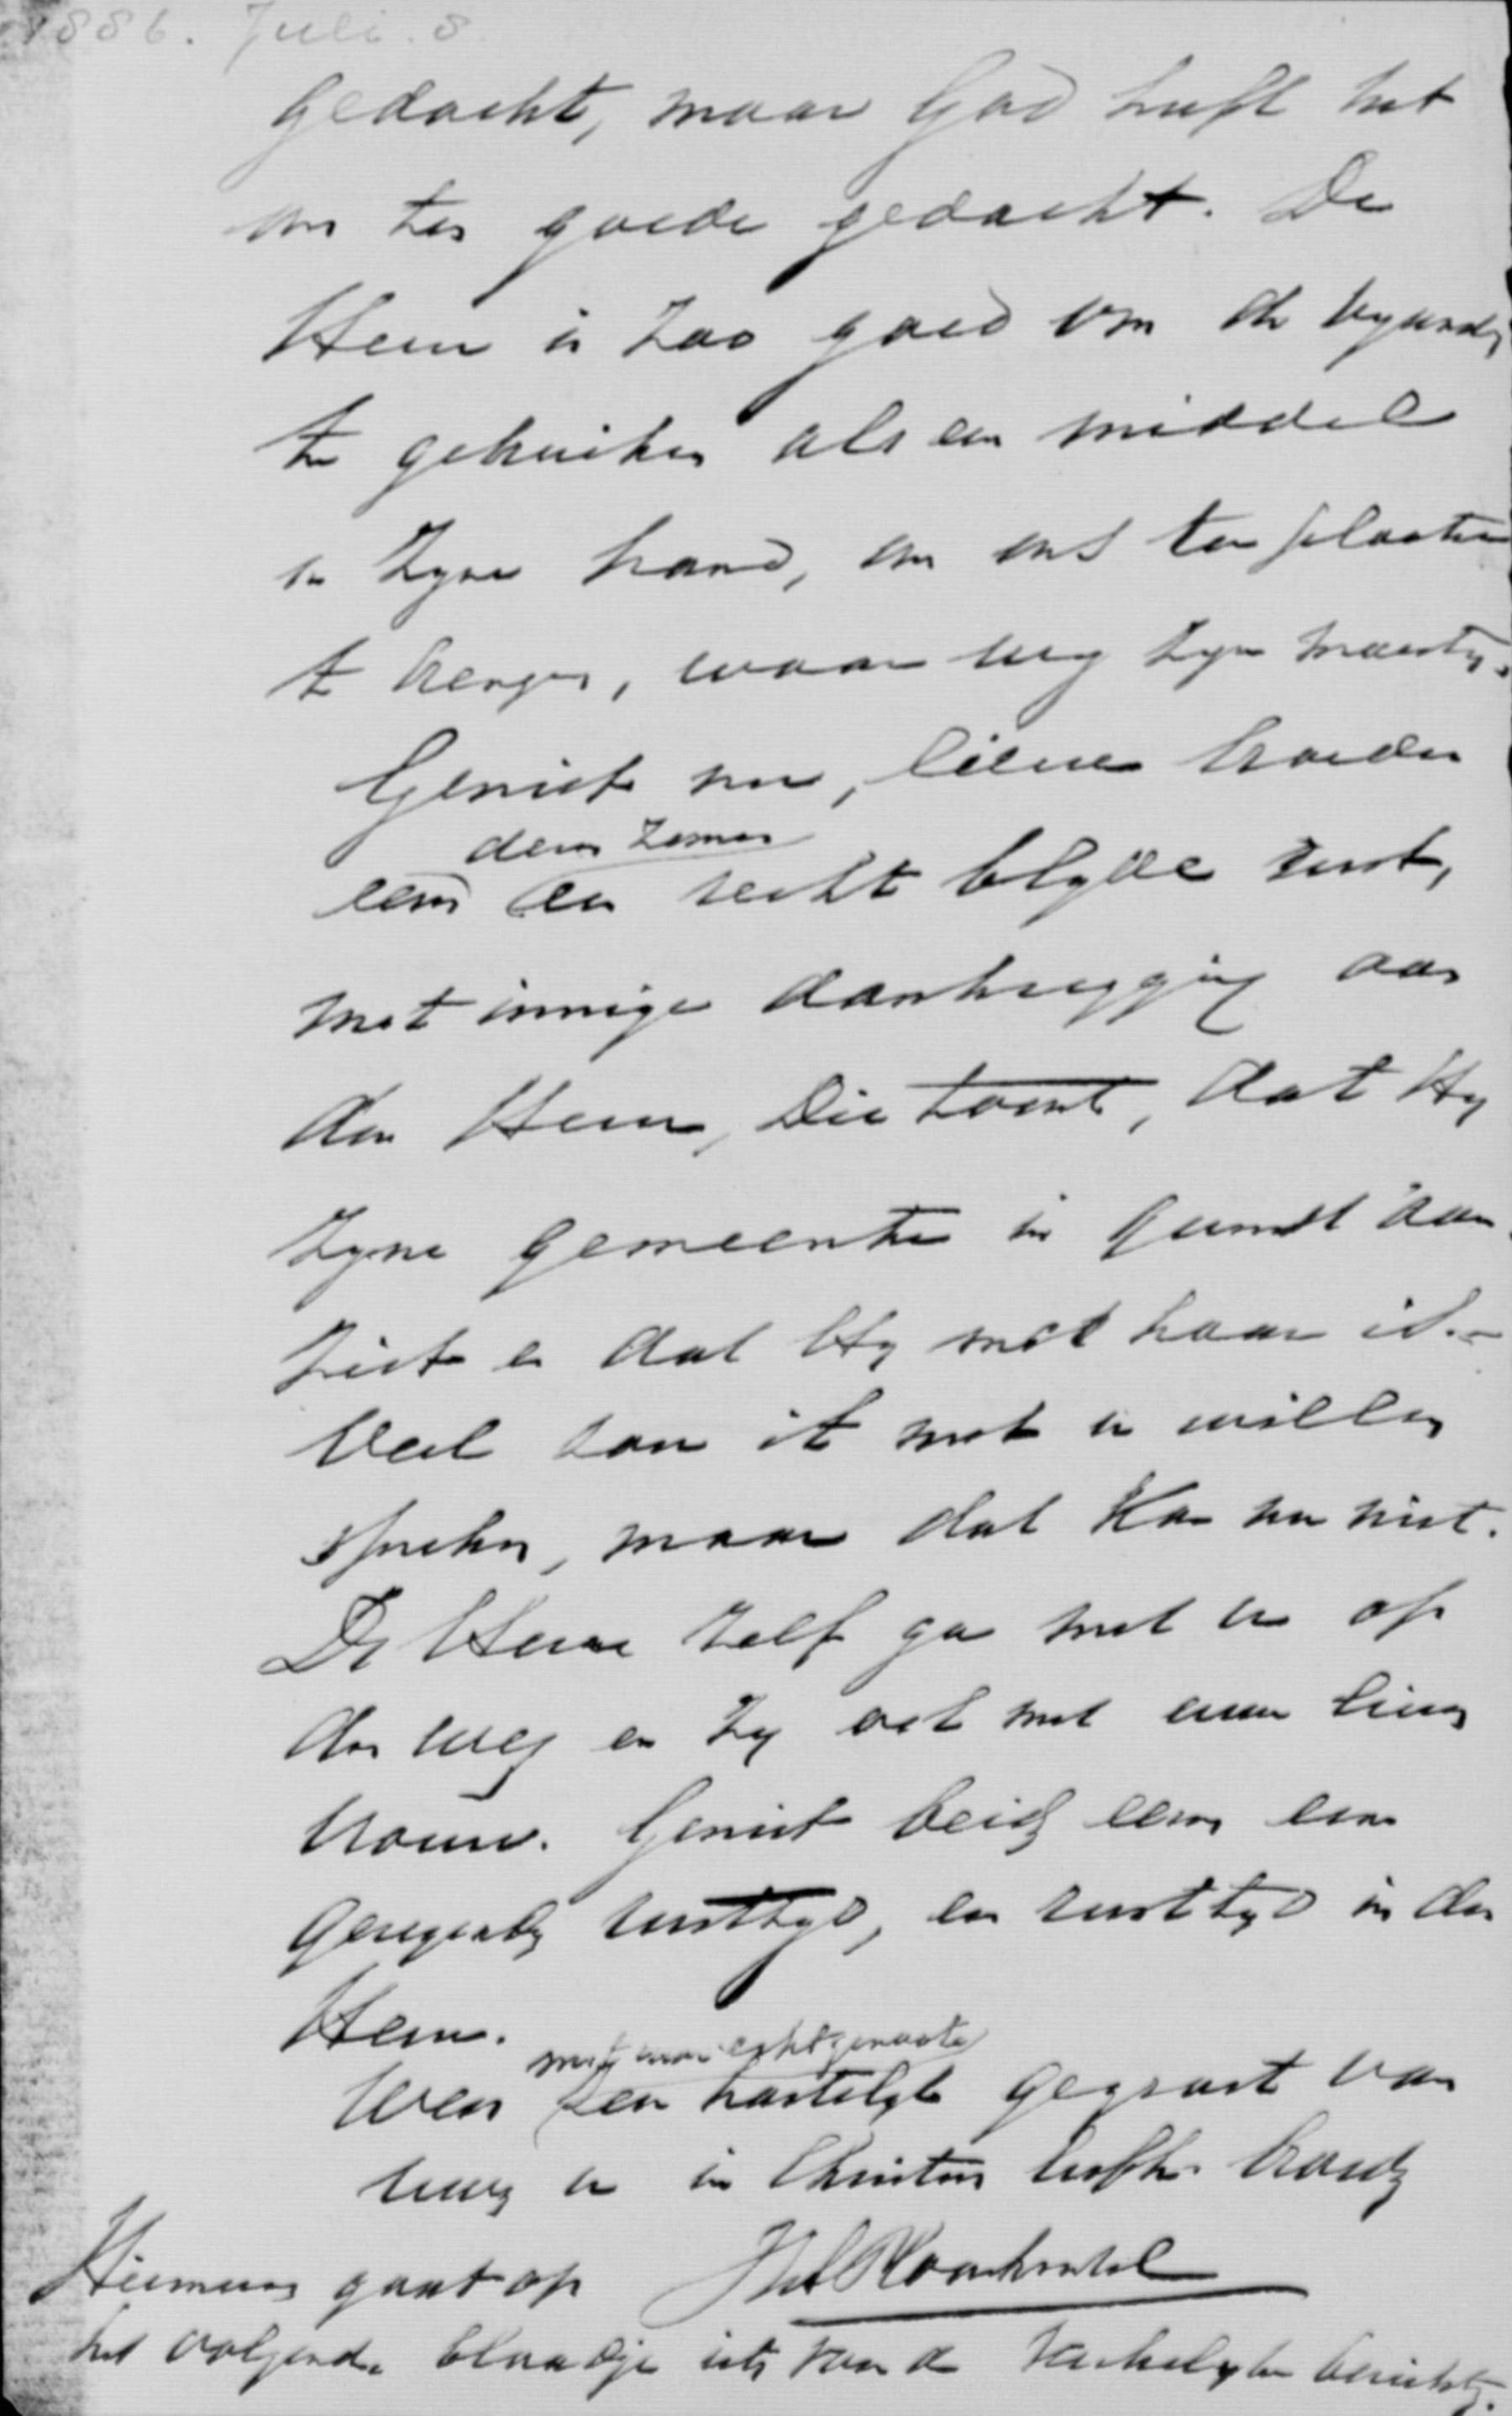 1886. Juli. 8.
gedacht, maar God heeft het
ons ten goede gedacht. De
Heere is zoo goed om de vyanden
te gebruiken als een middel
in Zyne hand, om ons ter plaatse
te brengen, waar wy zyn moesten.
Geniet nu, lieve broeder
dezen zomer
eens een recht blyde rust,
met innige dankzegging aan
den Heere, Die toont, dat Hy
Zyne gemeente in gunst aan
ziet en dat Hy met haar is.-
Veel zou ik met u willen
spreken, maar dat kan nu niet.
De Heere zelf ga met u op
den weg en zy ook met uwe lieve
vrouw. Geniet beide eens een
gezegende rusttyd, een rusttyd in den
Heere.
met uwe echtgenoote
Wees zeer hartelyk gegroet van
uwen u in Christus liefh. broeder

Hiernevens gaat op
het volgende blaadje iets van de kerkelyke berichten.